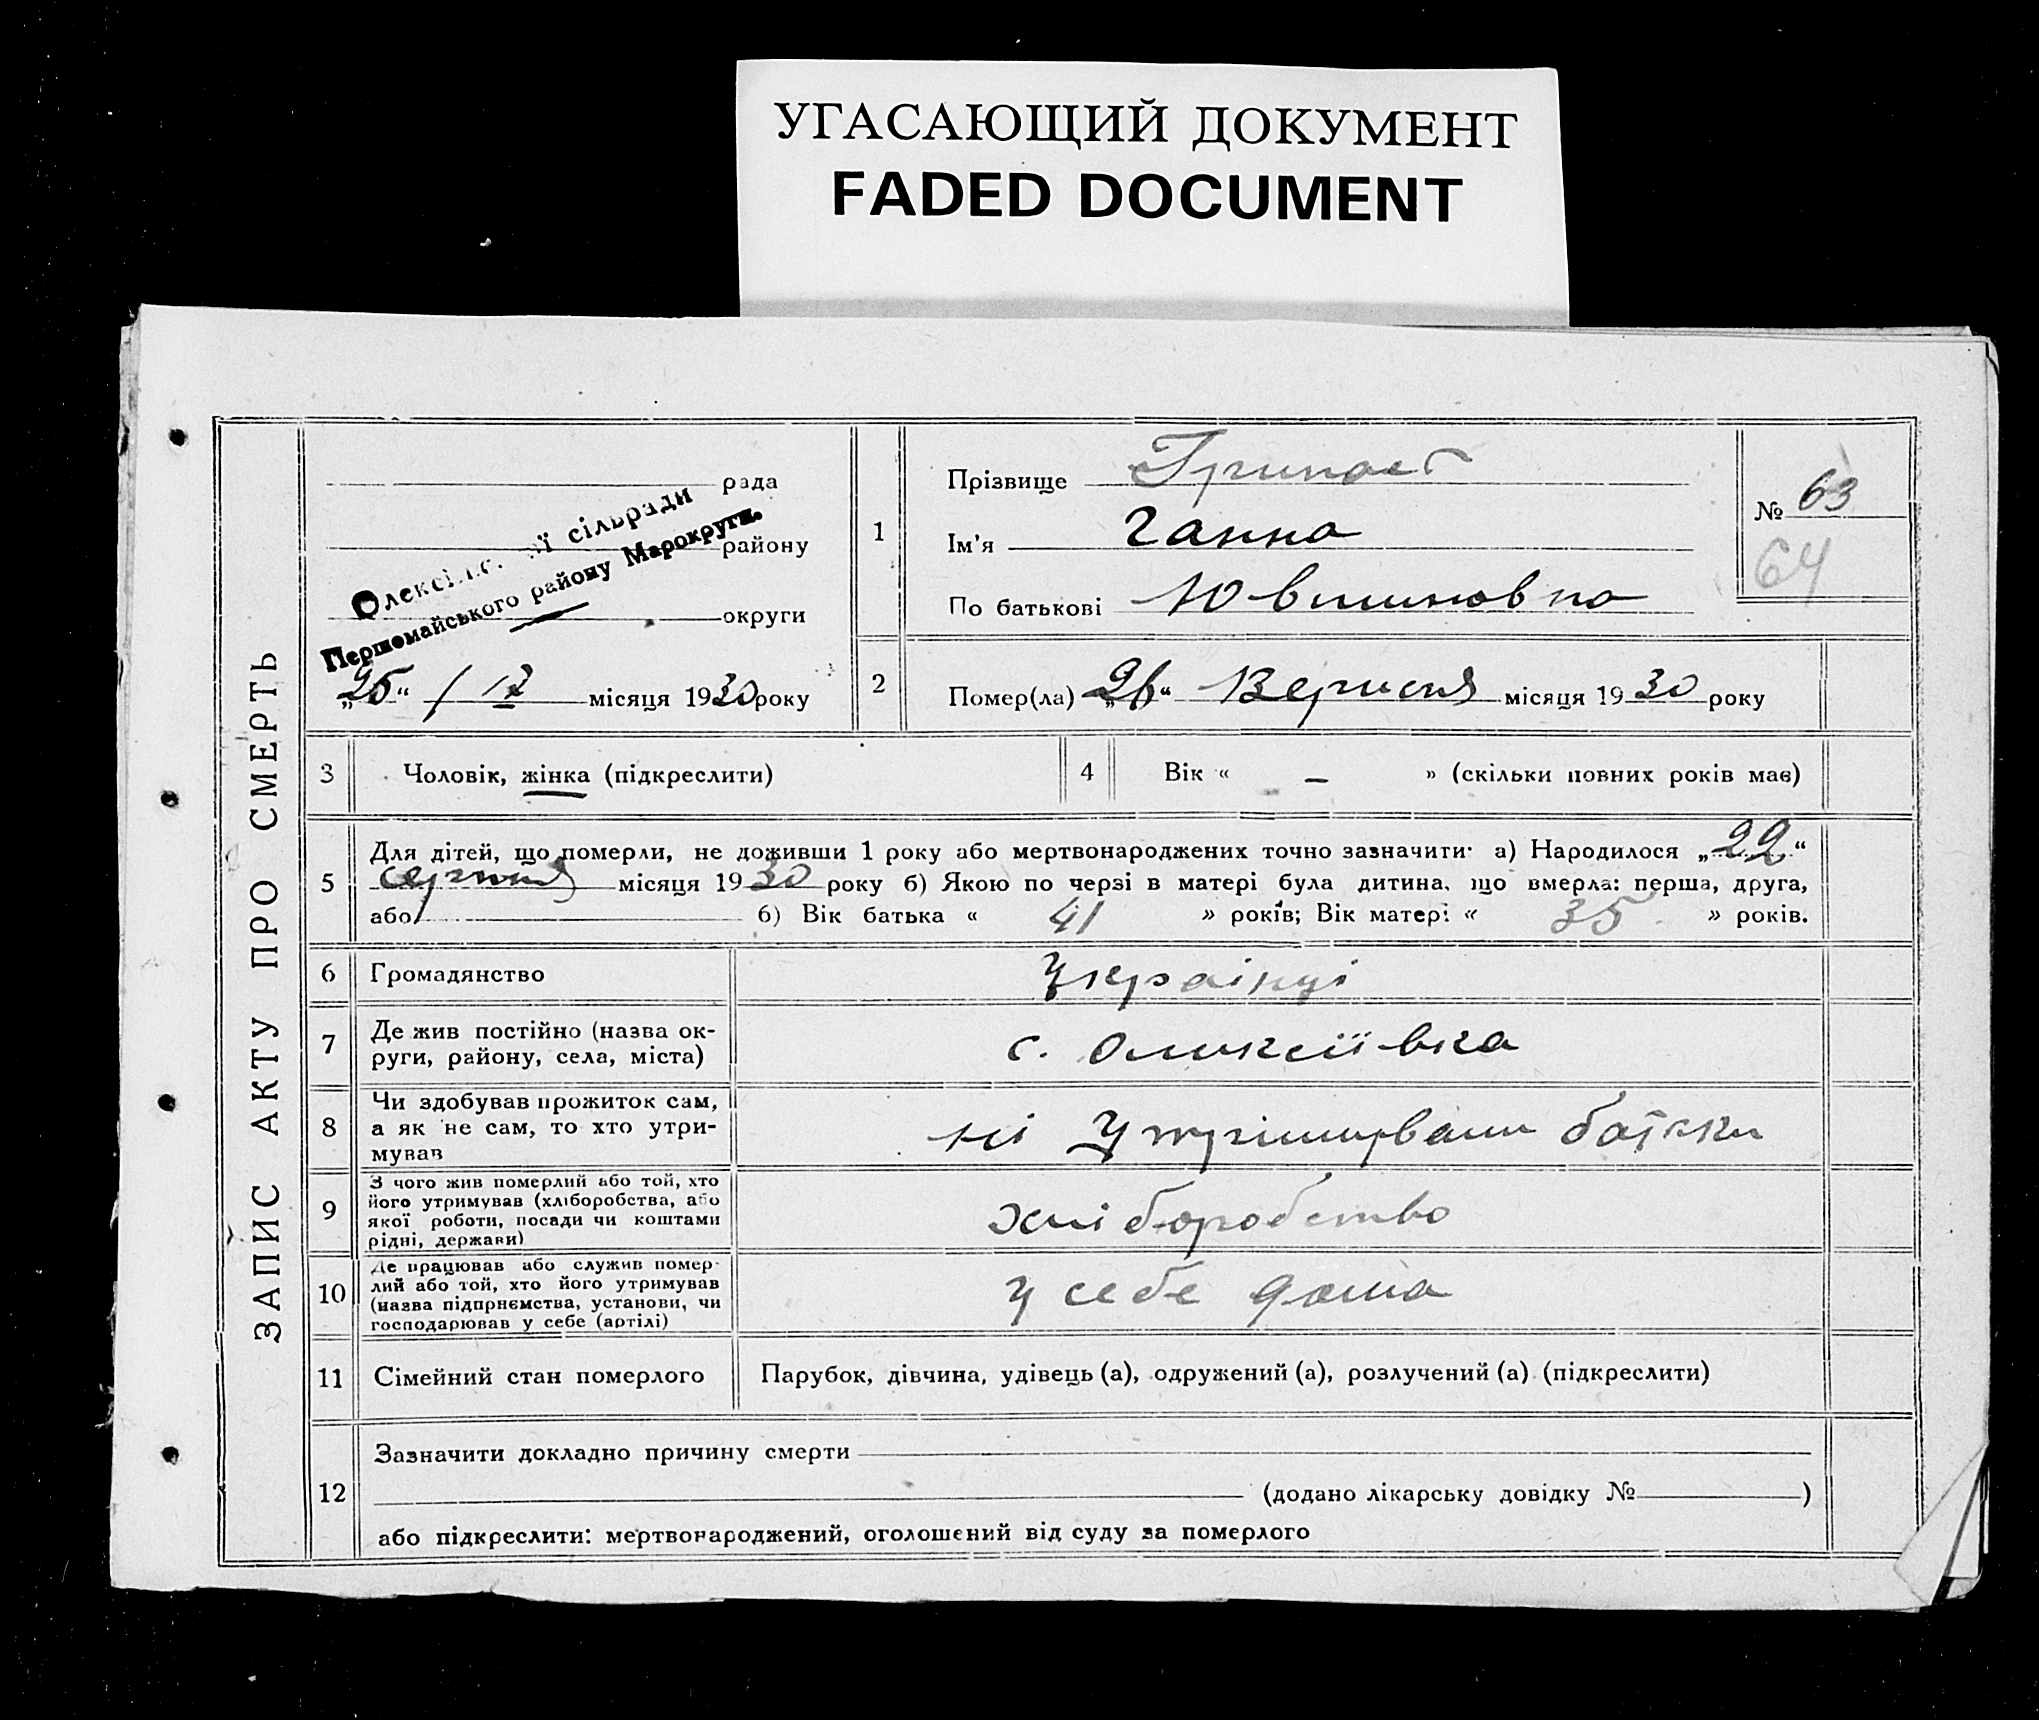 УГАСАЮЩИЙ ДОКУМЕНТ
FADED DOCUMENT
ЗАПИС АКТУ ПРО СМЕРТЬ
рада
району
округи
сільради
Першомайського району Марокруги.
„25“ місяця 1930 року
1
Прізвище
Ім'я Ганна
По батькові
№ 63
64
2
Помер(ла) „26“ Вересня місяця 1930 року
3
Чоловік, жінка (підкреслити)
4
Вік « — » (скільки повних років має)
5
Для дітей, що померли, не доживши 1 року або мертвонароджених точно зазначити: а) Народилося „22“
серпня місяця 1930 року б) Якою по черзі в матері була дитина, що вмерла: перша, друга,
або б) Вік батька « 41 » років; Вік матері « 35 » років.
6
Громадянство
Українці
7
Де жив постійно (назва ок-
руги, району, села, міста)
с. Оликсіївка
8
Чи здобував прожиток сам,
а як не сам, то хто утри-
мував
ні Утрімували батьки
9
З чого жив померлий або той, хто
його утримував (хліборобства, або
якої роботи, посади чи коштами
рідні, держави)
хліборобство
10
Де працював або служив помер-
лий або той, хто його утримував
(назва підприємства, установи, чи
господарював у себе (артілі)
У себе дома
11
Сімейний стан померлого
Парубок, дівчина, удівець (а), одружений (а), розлучений (а) (підкреслити)
12
Зазначити докладно причину смерти
(додано лікарську довідку № )
або підкреслити: мертвонароджений, оголошений від суду за померлого